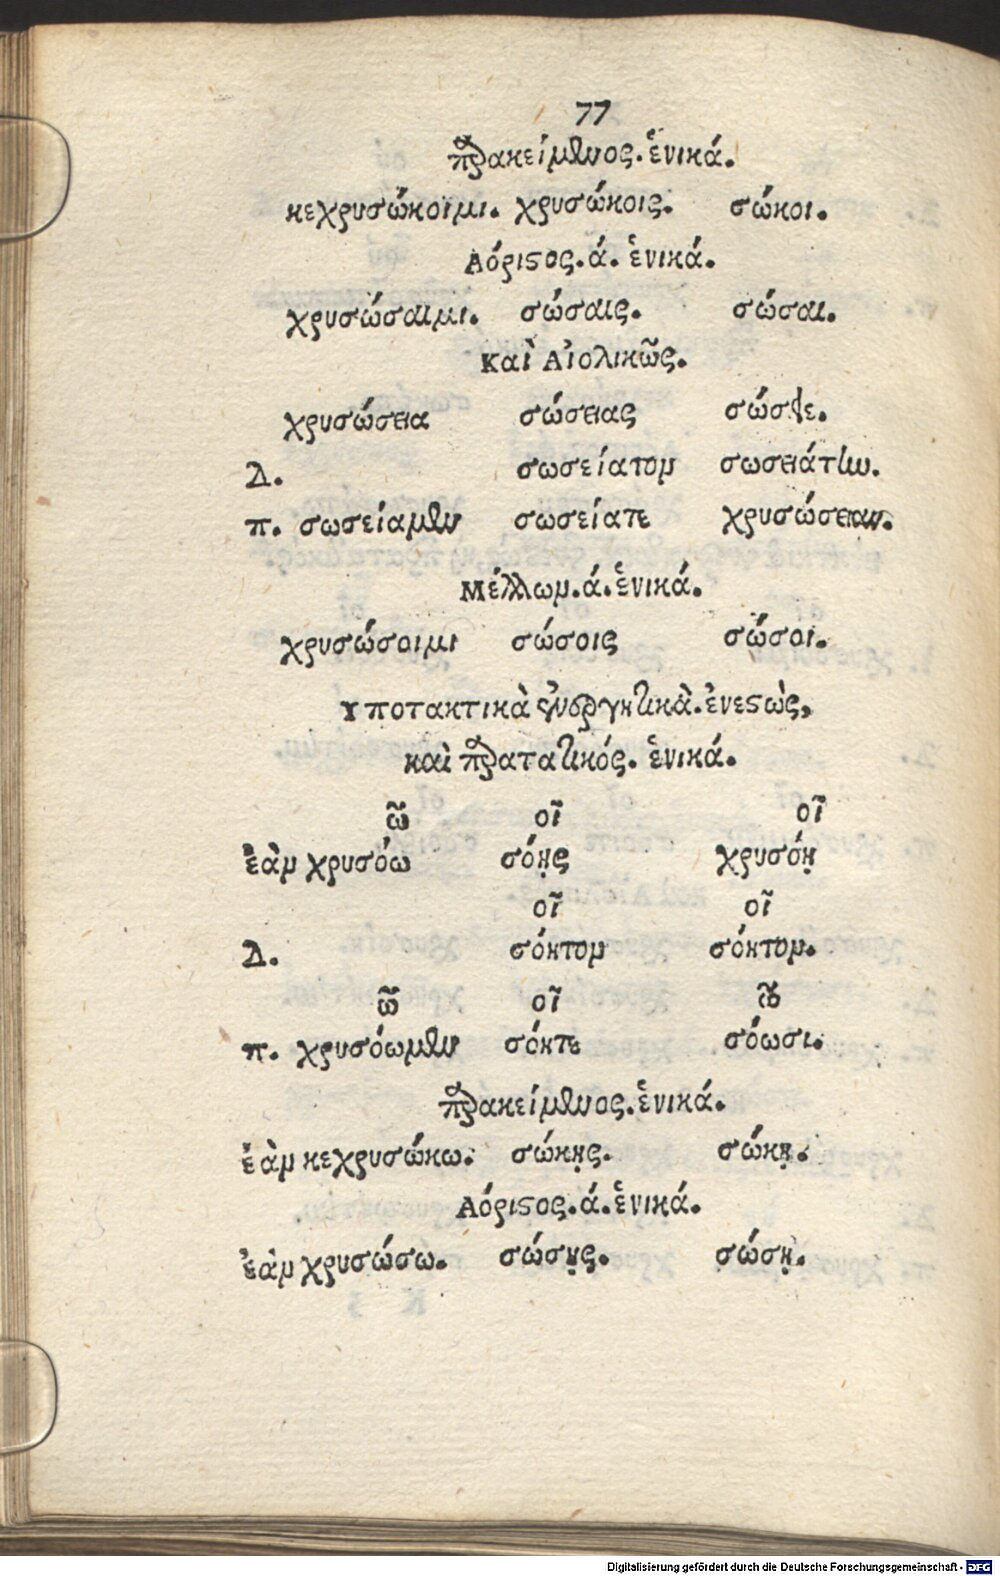 77
παρακείμενος. ἑνικά.
κεχρυσώκοιμι. χρυσώκοις. σώκοι.
Αόριστος. ά. ἑνικά.
χρυσώσαιμι. σώσαις. σώσαι.
καὶ Αἰολικῶς.
χρυσώσεια σώσειας σώσειε.
Δ. σωσείατον σωσειάτην.
π. σωσείαμεν σωσείατε χρυσώσειαν.
Μέλλων. ά. ἑνικά.
χρυσώσοιμι σώσοις σώσοι.
Υποτακτικὰ ἐνεργητικὰ. ἐνεστὼς,
καὶ παρατατικός. ἑνικά.
ῶ οῖ οῖ
ἐὰν χρυσόω σόῃς χρυσόῃ
οῖ οῖ
Δ. σόητον σόητον.
ῶ οῖ οῦ
π. χρυσόωμεν σόητε σόωσι.
παρακείμενος. ἑνικά.
ἐὰν κεχρυσώκω. σώκῃς. σώκῃ.
Αόριστος. ά. ἑνικά.
ἐὰν χρυσώσω. σώσῃς. σώσῃ.
Digitalisierung gefördert durch die Deutsche Forschungsgemeinschaft - DFG